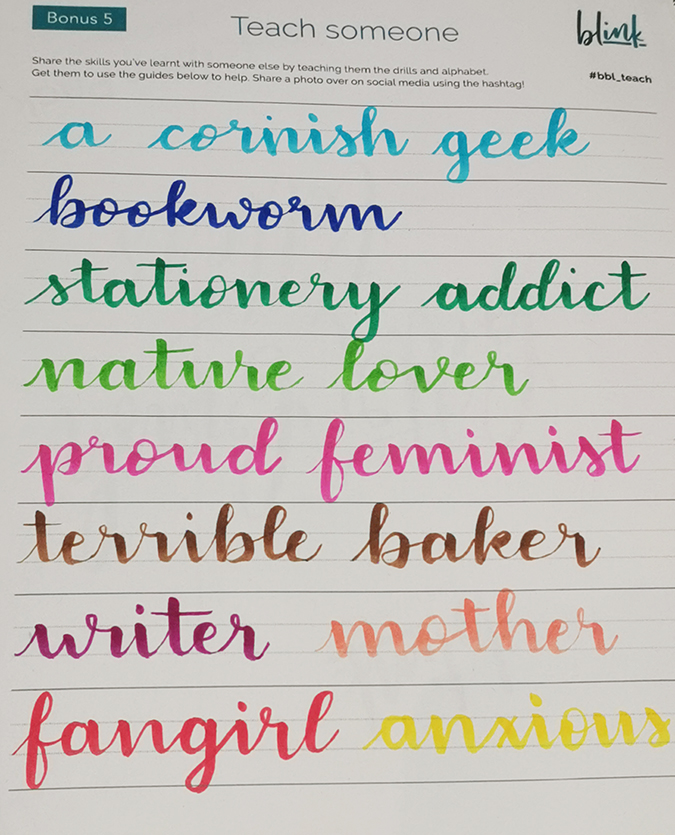 Bonus 5
Teach someone
blink
Share the skills you've learnt with someone else by teaching them the drills and alphabet.
Get them to use the guides below to help. Share a photo over on social media using the hashtag!
#bbl_teach
a cornish geek
bookworm
stationery addict
nature lover
proud feminist
terrible baker
writer mother
fangirl anxious